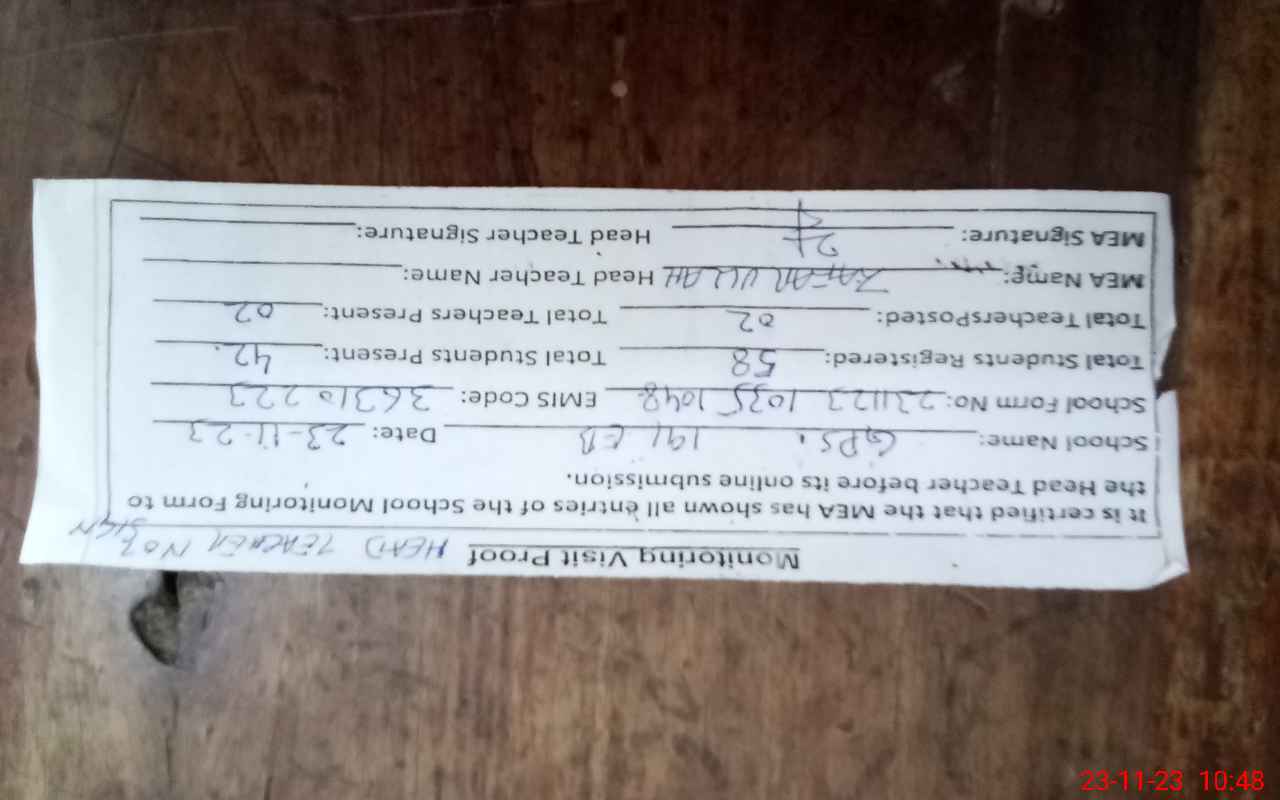 Monitoring Visit Proof HEAD TEACHER NOT SIGN
It is certified that the MEA has shown all entries of the School Monitoring Form to
the Head Teacher before its online submission.
School Name: GPS. 191 EB Date: 23-11-23
School Form No: 231123 1035 1048 EMIS Code: 36310223
Total Students Registered: 58 Total Students Present: 42.
Total TeachersPosted: 02 Total Teachers Present: 02
MEA Name: ZAFAR ULLAH Head Teacher Name:
MEA Signature: Head Teacher Signature:
23-11-23 10:48